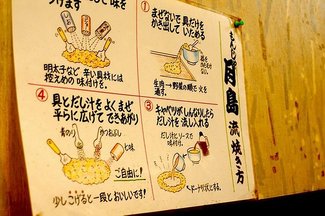 つけます
て味を
明太子など 辛い具材には
控えめの味付けを。
①
まぜないで具だけを
かき出していためる
生肉→野菜の順で火を
通す。
④
具とだし汁をよくまぜ
平らに広げてできあがり
青のり
かつおぶし
ご自由に!
少しこげると一段とおいしいです!
③
キャベツがしんなりしたら
だし汁を流し入れる
だし汁とソースで
味付け。
ドーナツ状にする。
もんじゃ
月島
流
焼き方